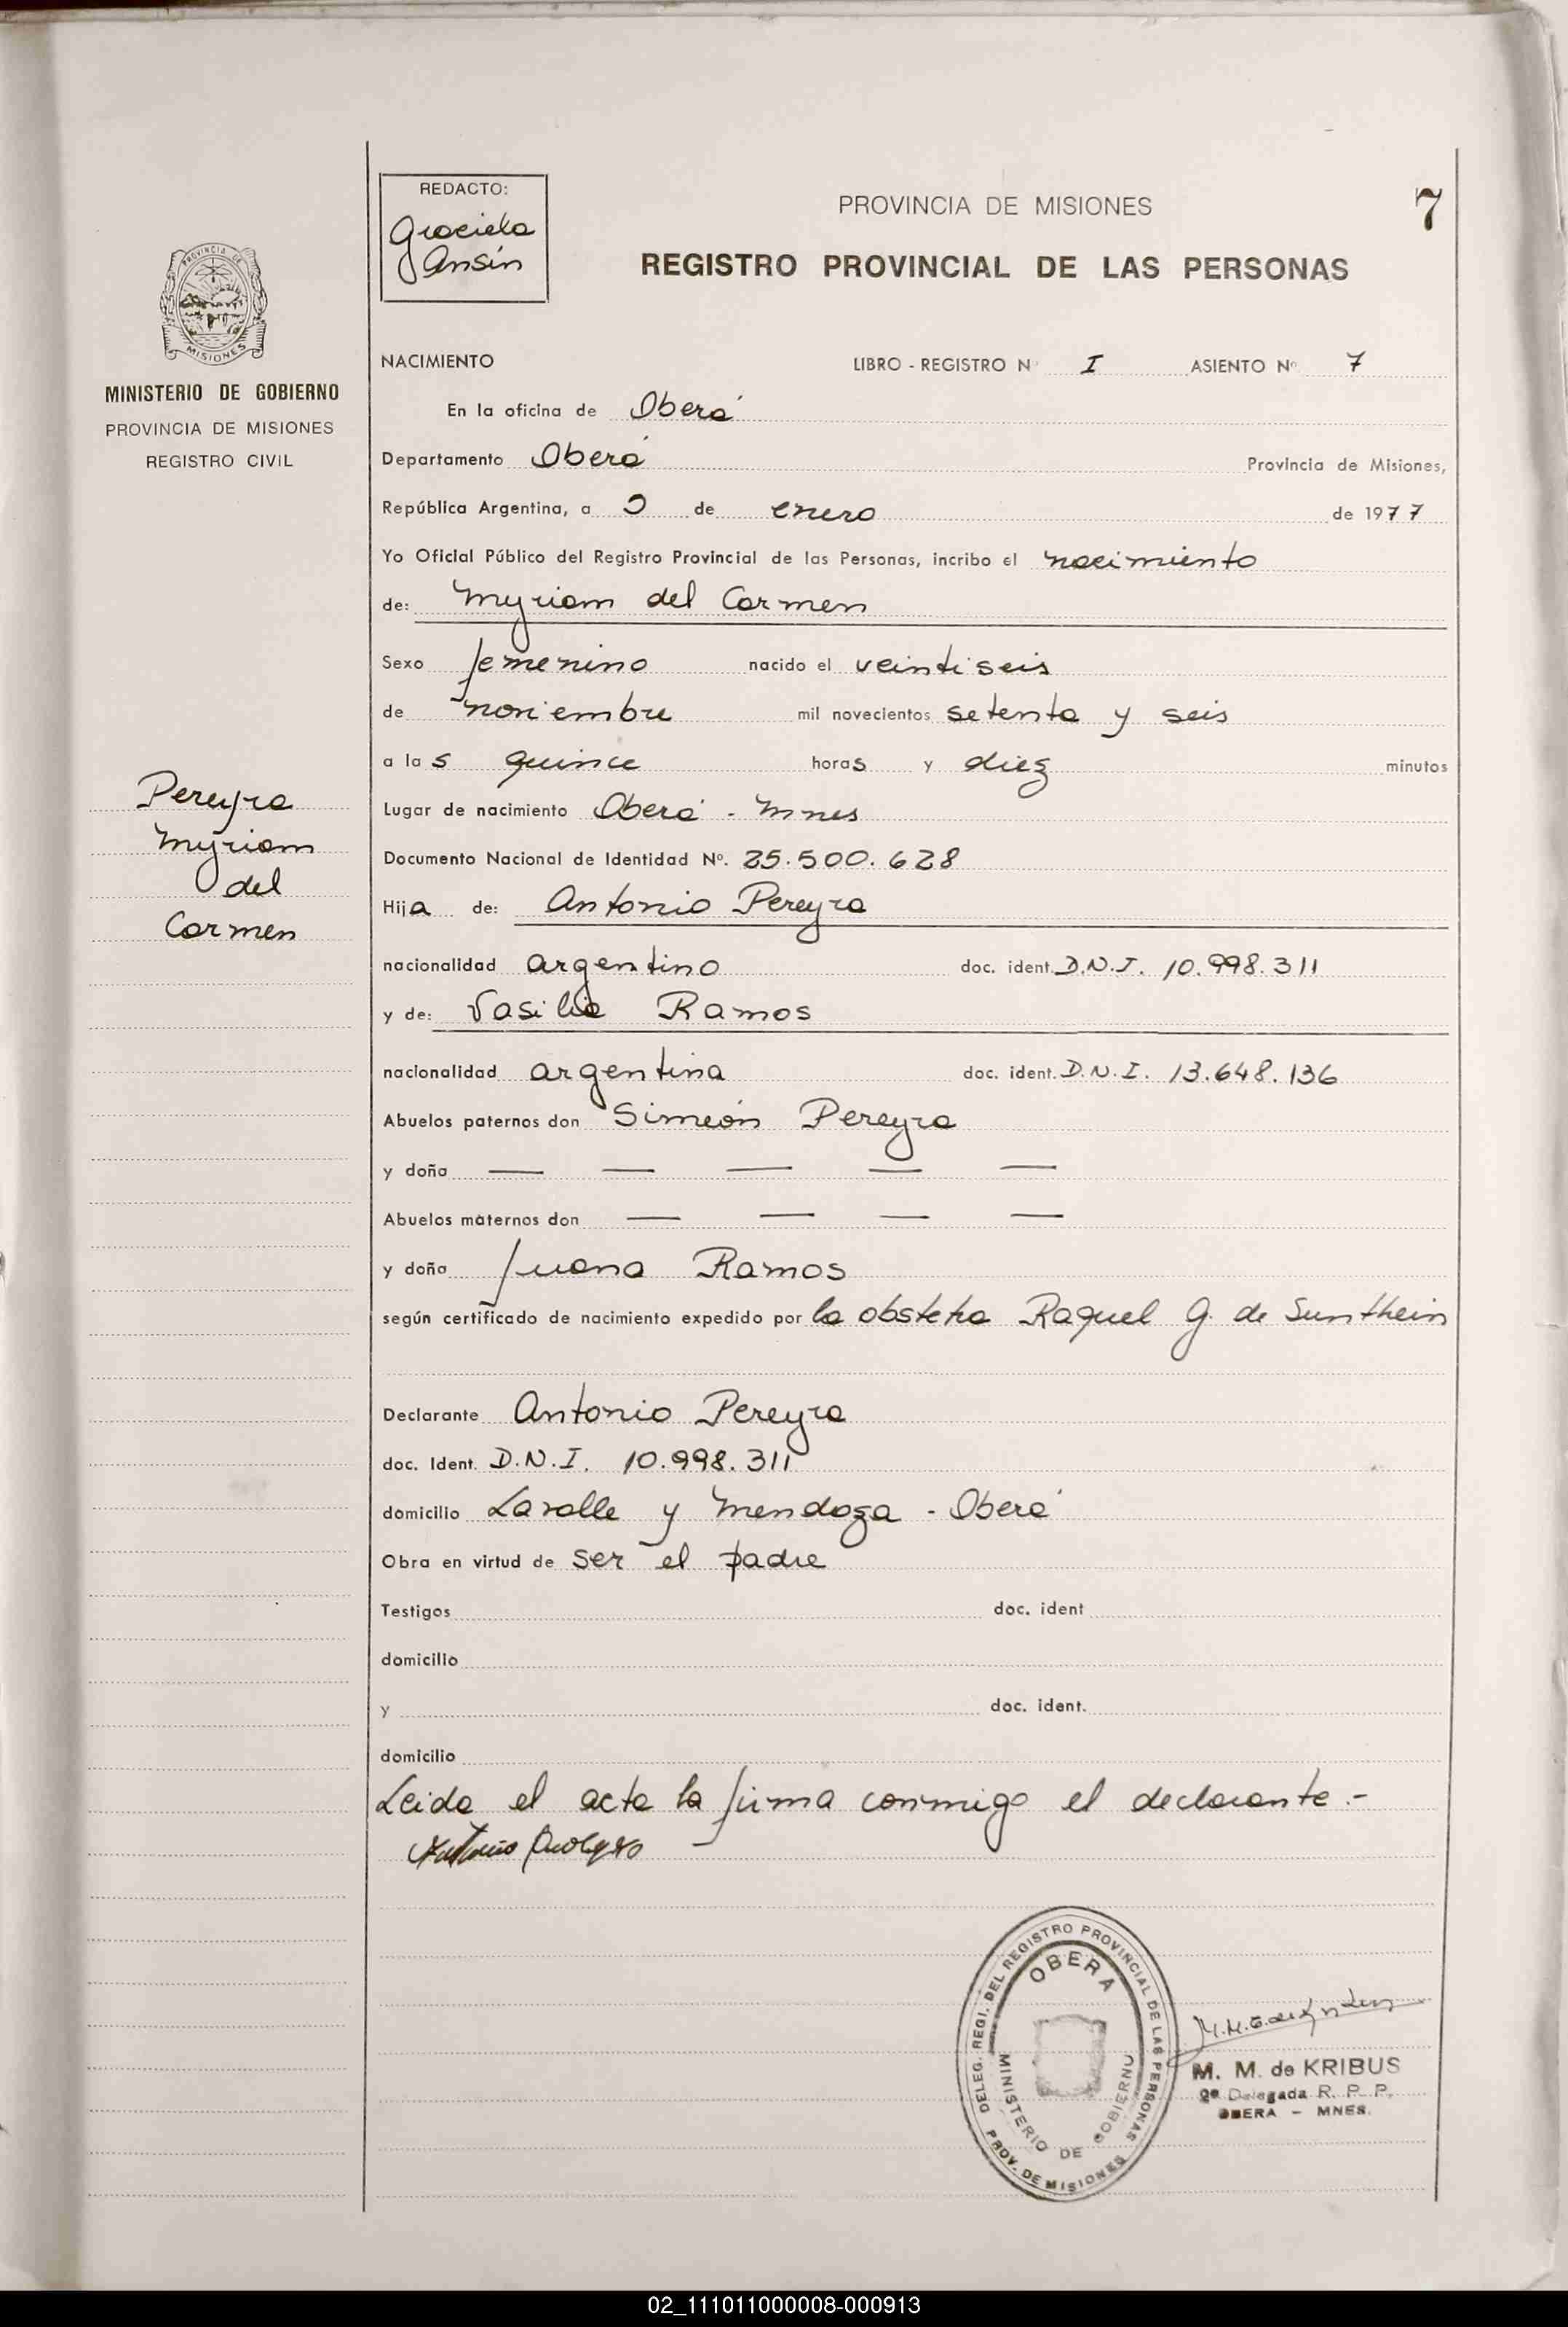 REDACTO:
Graciela
Ansín
PROVINCIA DE MISIONES
7
REGISTRO PROVINCIAL DE LAS PERSONAS
PROVINCIA DE
MISIONES
MINISTERIO DE GOBIERNO
PROVINCIA DE MISIONES
REGISTRO CIVIL
NACIMIENTO LIBRO - REGISTRO Nº I ASIENTO Nº 7
En la oficina de Oberá
Departamento Oberá Provincia de Misiones,
República Argentina, a de enero de 1977
Yo Oficial Público del Registro Provincial de las Personas, incribo el nacimiento
de: Myriam del Carmen
Sexo femenino nacido el veintiseis
de noviembre mil novecientos setenta y seis
a las quince horas y diez minutos
Lugar de nacimiento Oberá - Mnes
Documento Nacional de Identidad Nº. 25.500.628
Hija de: Antonio Pereyra
nacionalidad argentino doc. ident. D.N.I. 10.998.311
y de: Vasilia Ramos
nacionalidad argentina doc. ident. D.N.I. 13.648.136
Abuelos paternos don Simeón Pereyra
y doña — — — — —
Abuelos maternos don — — — —
y doña Juana Ramos
según certificado de nacimiento expedido por la obstetra Raquel G. de Sunthein
Declarante Antonio Pereyra
doc. Ident. D.N.I. 10.998.311
domicilio Lavalle y Mendoza - Oberá
Obra en virtud de ser el padre
Testigos doc. ident
domicilio
y doc. ident.
domicilio
Leida el acta la firma conmigo el declarante.-
Pereyra
Myriam
del
Carmen
DELEG. REGI. DEL REGISTRO PROVINCIAL DE LAS PERSONAS
OBERA
MINISTERIO DE GOBIERNO
PROV. DE MISIONES
M. M. de KRIBUS
Delegada R. P. P.
OBERA - MNES.
02_111011000008-000913